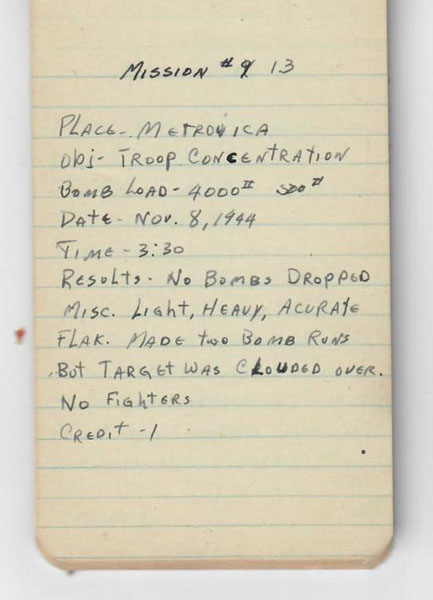 Mission # 9 13
Place - Metrovica
Obj - Troop Concentration
Bomb Load - 4000# 500#
Date - Nov. 8, 1944
Time - 3:30
Results - No Bombs Dropped
Misc. Light, Heavy, Acurate
Flak. Made two Bomb Runs
But Target was Clouded over.
No Fighters
Credit - 1